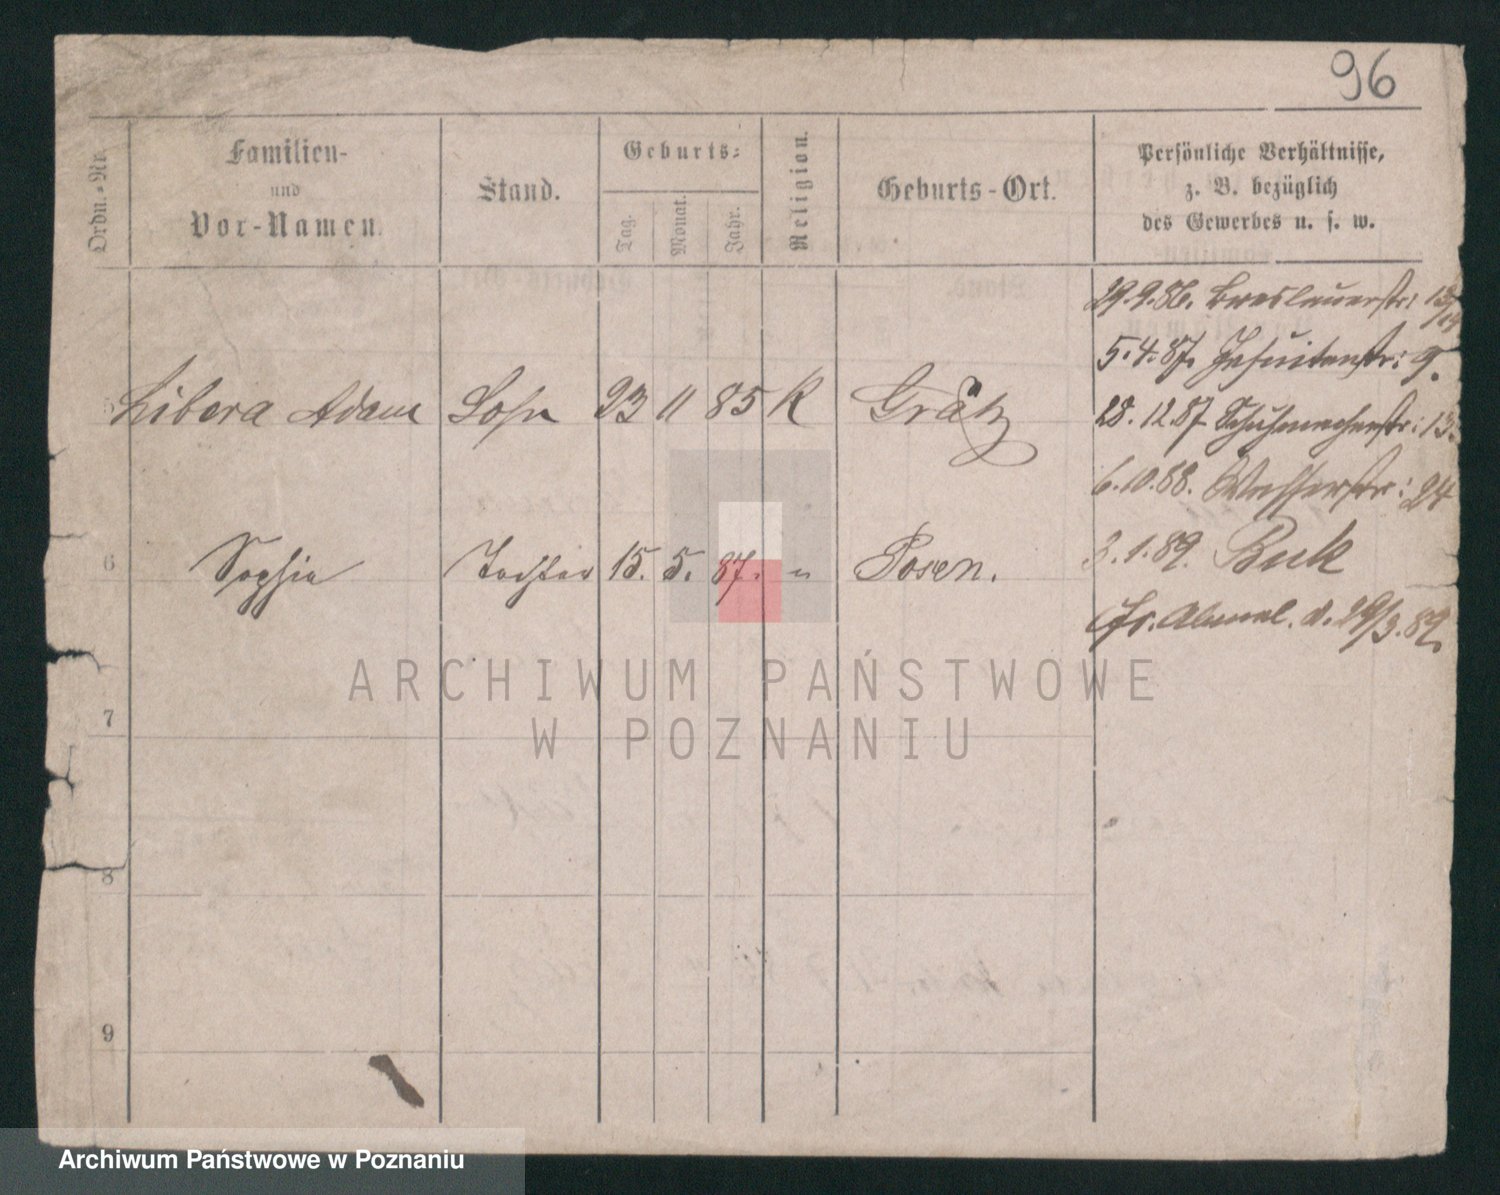 96
Ordn.-Nr.
Familien-
und
Vor-Namen.
Stand.
Geburts-
Tag.
Monat.
Jahr.
Religion.
Geburts-Ort.
Persönliche Verhältnisse,
z. B. bezüglich
des Gewerbes u. s. w.
29.9.86. Breslauerstr: 13/14
5.4.87. Jesuitenstr: 9.
5 Libera Adam Sohn 23 11 85 K Grätz
28.12.87 Schuhmacherstr: 13.
6.10.88. Wasserstr: 24
3.1.89. Buk
6 Sophie Tochter 15. 5. 87. " Posen.
Abmel. d. 29/3.89.
7
8
9
ARCHIWUM PAŃSTWOWE
W POZNANIU
Archiwum Państwowe w Poznaniu